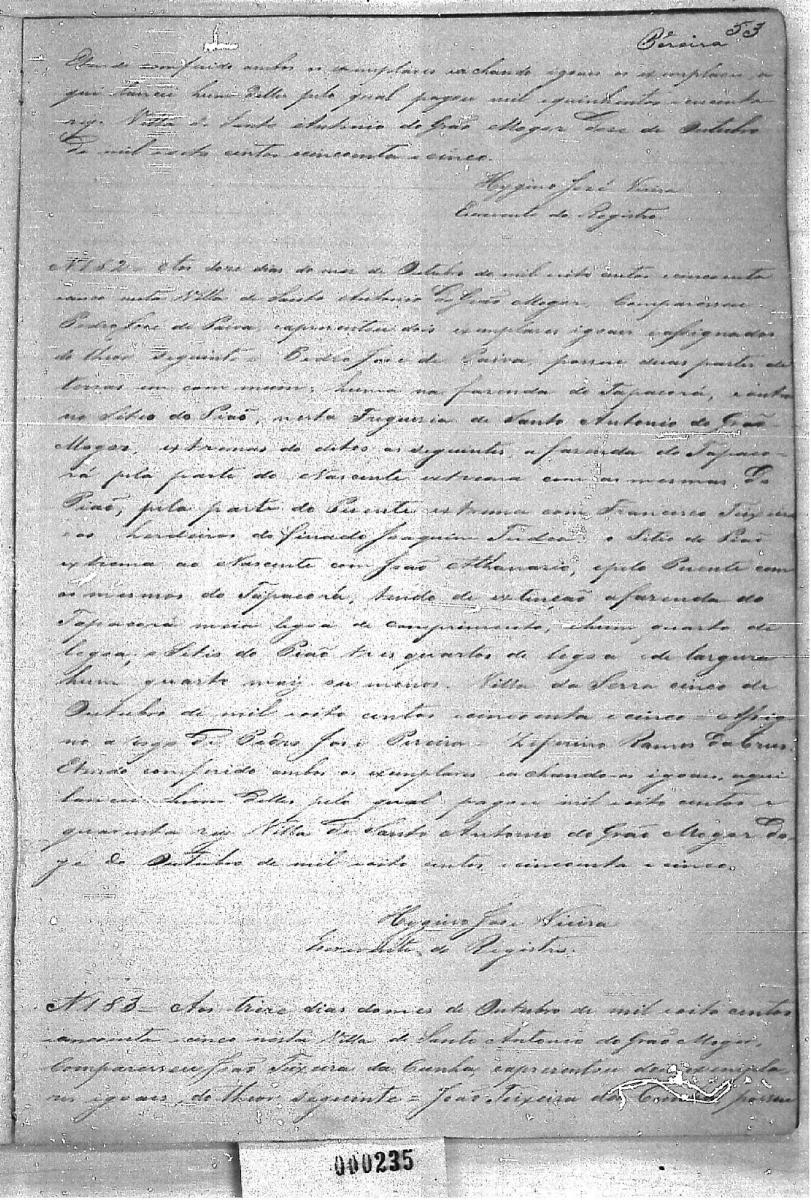 53
Pereira
conferido ambos os exemplares e achando igoaes os exemplares, a
qui lancei hum delles pelo qual pagou mil e quinhentos e
reis Villa de Santo Antonio do Grão Mogor doze de Outubro
de mil oito centos e cincoenta e cinco.
Hygino José Vieira
Escrevente do Registro
N 182 - Aos doze dias do mez de Outubro de mil oito centos e cincoenta
e cinco nesta Villa de Santo Antonio do Grão Mogor, Compareceu
Pedro Jose de Paiva, e aprezentou dois exemplares igoaes e assignados
do theor seguinte = Pedro José de Paiva, possue duas partes de
terras em commum, huma na fazenda do Tapacorá, e outra
no Sitio do Pião, nesta Freguezia de Santo Antonio do Grão
Mogor, extremas do ditos as seguintes, a fazenda do Tapaco-
rá pela parte do Nascente extrema com as mesmas do
Pião, pela parte do Puente extrema com Francisco Teixeira
e os herdeiros do finado Joaquim o Sitio do Pião
extrema ao Nascente com João Athanazio, e pelo Puente com
os mesmos do Tapacorá, tendo de extinção a fazenda do
Tapacorá meia legoa de comprimento, e hum quarto de
legoa, o Sitio do Pião tres quartos de legoa e de largura
hum quarto mais ou menos. Villa da Serra cinco de
Outubro de mil oito centos e cincoenta e cinco = Assig
no a rogo de Pedro José Pereira = Zeferino Ramos da Cruz.
E tendo conferido ambos os exemplares e achando-os igoaes, aqui
lancei hum delles pelo qual pagou mil oito centos e
quarenta reis Villa de Santo Antonio do Grão Mogor do-
ze de Outubro de mil oito centos e cincoenta e cinco.
Hygino José Vieira
Escrevente do Registro.
N 183 - Aos treze dias do mez de Outubro de mil oito centos
e cincoenta e cinco nesta Villa de Santo Antonio do Grão Mogor,
Compareceu João Teixeira da Cunha e aprezentou dous exempla-
res igoaes, do theor seguinte = João Teixeira da Cunha possue
000235